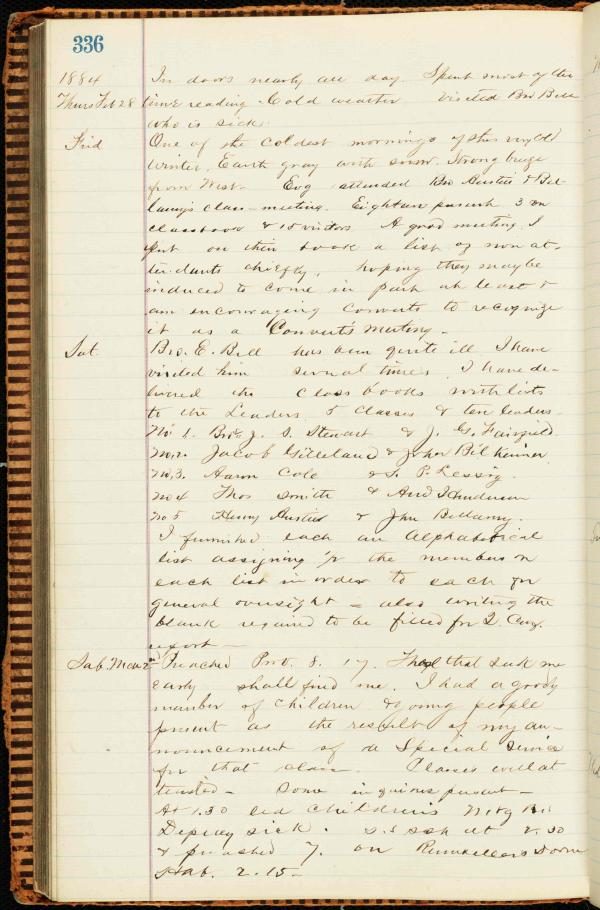 336
1884 In doors nearly all day. Spent most of the
Thurs Feb 28 time reading. Cold weather visited Bro Bell
who is sick.
Frid One of the coldest mornings of this very cold
winter. Earth gray with snow. Strong breeze
from West. Evg attended Bro Austin & Bel-
lamy's class-meeting. Eighteen present 3 on
classbook & 15 visitors. A good meeting. I
put on their book a list of non at-
tendants chiefly, hoping they may be
induced to come in part at least &
am encouraging converts to recognize
it as a Converts Meeting.
Sat. Bro. E. Bell has been quite ill I have
visited him several times. I have de-
livered the class books with lists
to the Leaders, 5 classes & ten leaders.
No 1. Bros J. S. Stewart & J. G. Fairfield
No, 2. Jacob Gilleland & John
No, 3. Aaron Cole & P. Lessig.
No 4 Thos Smith &
No 5 Henry Austin & Jhn Bellamy.
I furnished each an alphabetical
list assigning 1/2 the members on
each list in order to each for
general oversight = also writing the
blank required to be filled for Q. Conf.
report —
Sab. Mar 2nd Preached Prov. 8. 17. Those that seek me
early shall find me. I had a goodly
number of children & young people
present as the result of my an-
nouncement of a Special Service
for that class. Classes well at
tended — Some present —
At 1.30 led Children's Mtg Bro
Depuy sick. S.S at 2.30
& preached 7. on
Hab. 2. 15 —